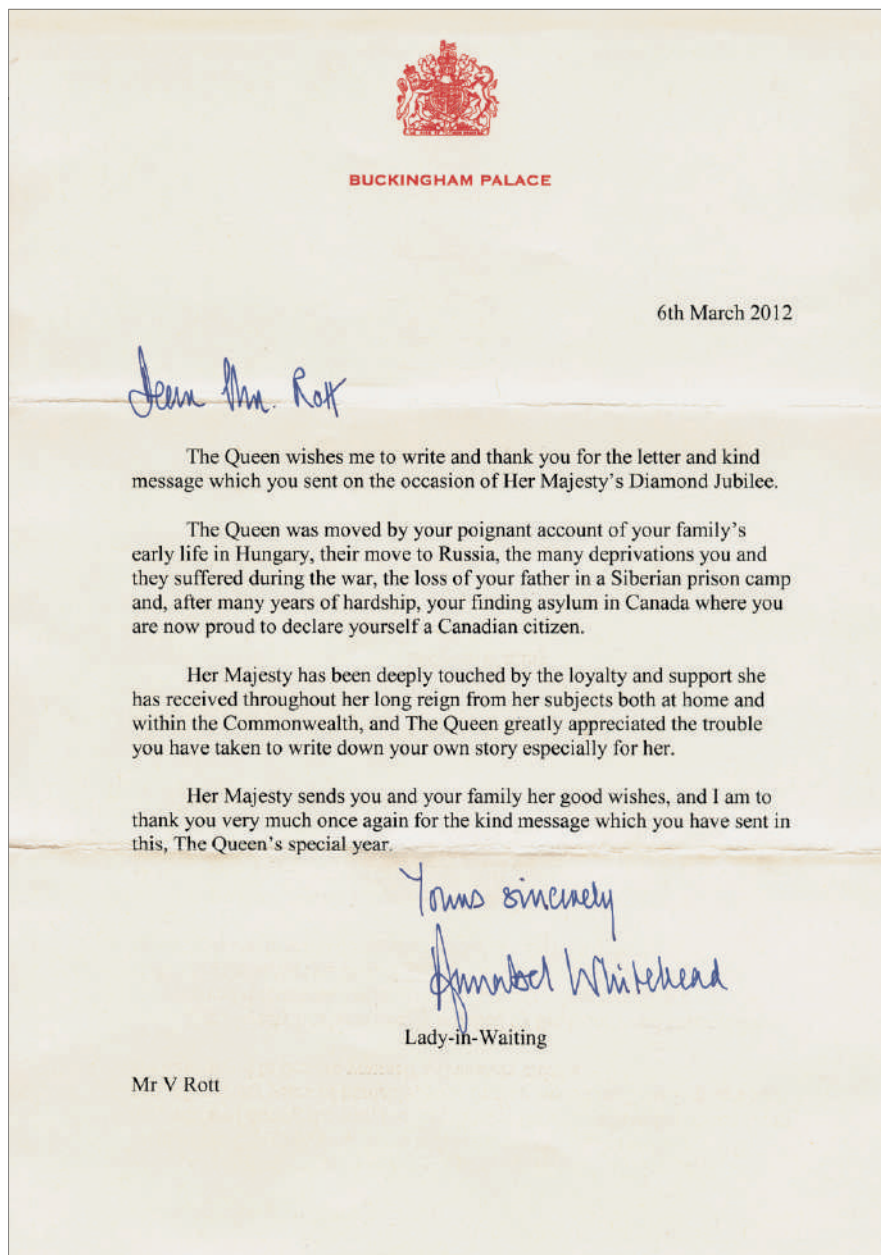 BUCKINGHAM PALACE
6th March 2012
Dear Mr. Rott
The Queen wishes me to write and thank you for the letter and kind
message which you sent on the occasion of Her Majesty's Diamond Jubilee.
The Queen was moved by your poignant account of your family's
early life in Hungary, their move to Russia, the many deprivations you and
they suffered during the war, the loss of your father in a Siberian prison camp
and, after many years of hardship, your finding asylum in Canada where you
are now proud to declare yourself a Canadian citizen.
Her Majesty has been deeply touched by the loyalty and support she
has received throughout her long reign from her subjects both at home and
within the Commonwealth, and The Queen greatly appreciated the trouble
you have taken to write down your own story especially for her.
Her Majesty sends you and your family her good wishes, and I am to
thank you very much once again for the kind message which you have sent in
this, The Queen's special year.
Yours sincerely
Annabel Whitehead
Lady-in-Waiting
Mr V Rott